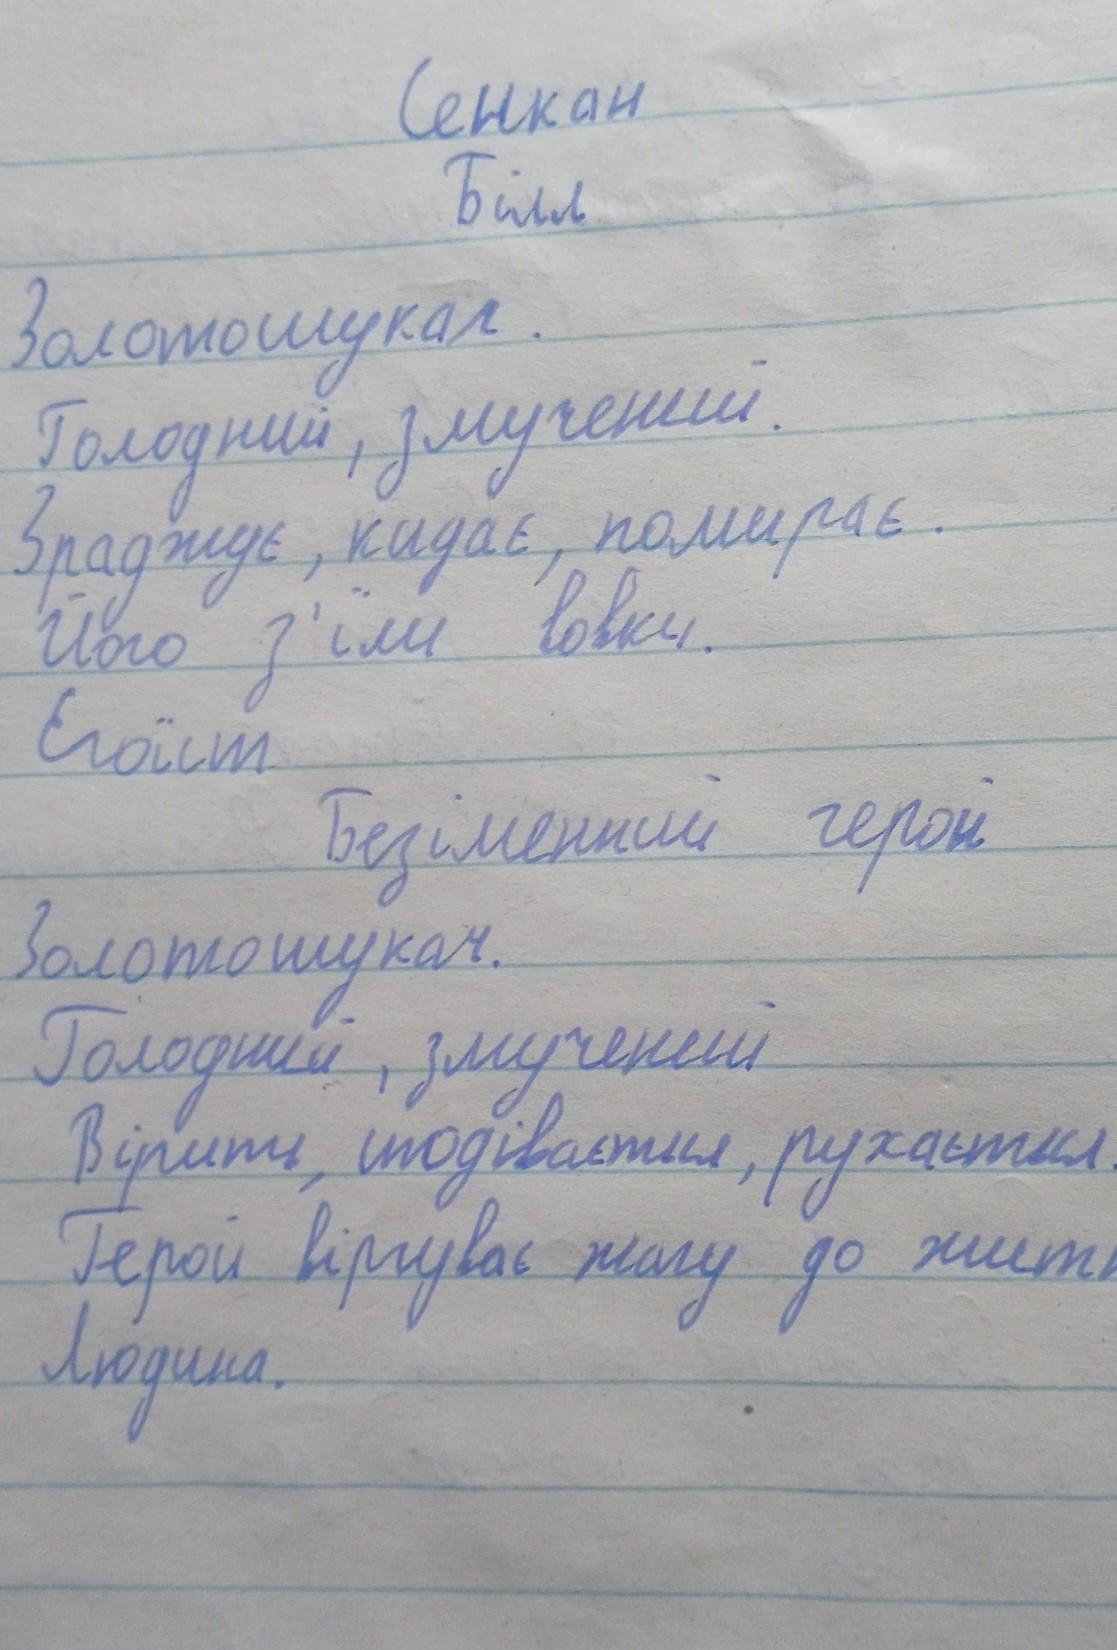 Сенкан
Білл
Золотошукач.
Голодний, змучений.
Зраджує, кидає, помирає.
Його з'їли вовки.
Єгоїст
Безіменний герой
Золотошукач.
Голодний, змучений
Вірить, сподівається, рухається.
Герой відчуває жагу до житт
Людина.